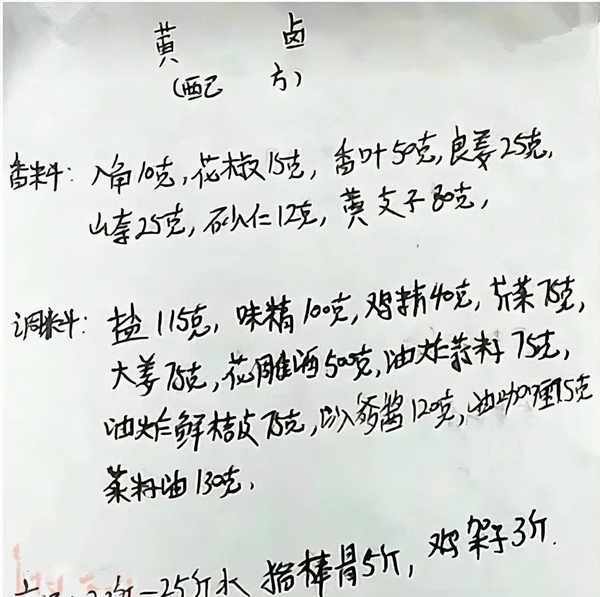 黄 卤
(配 方)
香料：八角10克，花椒15克，香叶50克，良姜25克，
山奈25克，砂仁12克，黄支子80克，
调料：盐115克，味精100克，鸡精40克，芹菜75克，
大姜75克，花雕酒500克，油炸蒜籽75克，
油炸鲜桔皮75克，沙爹酱120克，油咖喱15克
菜籽油130克，
25斤水 猪棒骨5斤，鸡架子3斤.